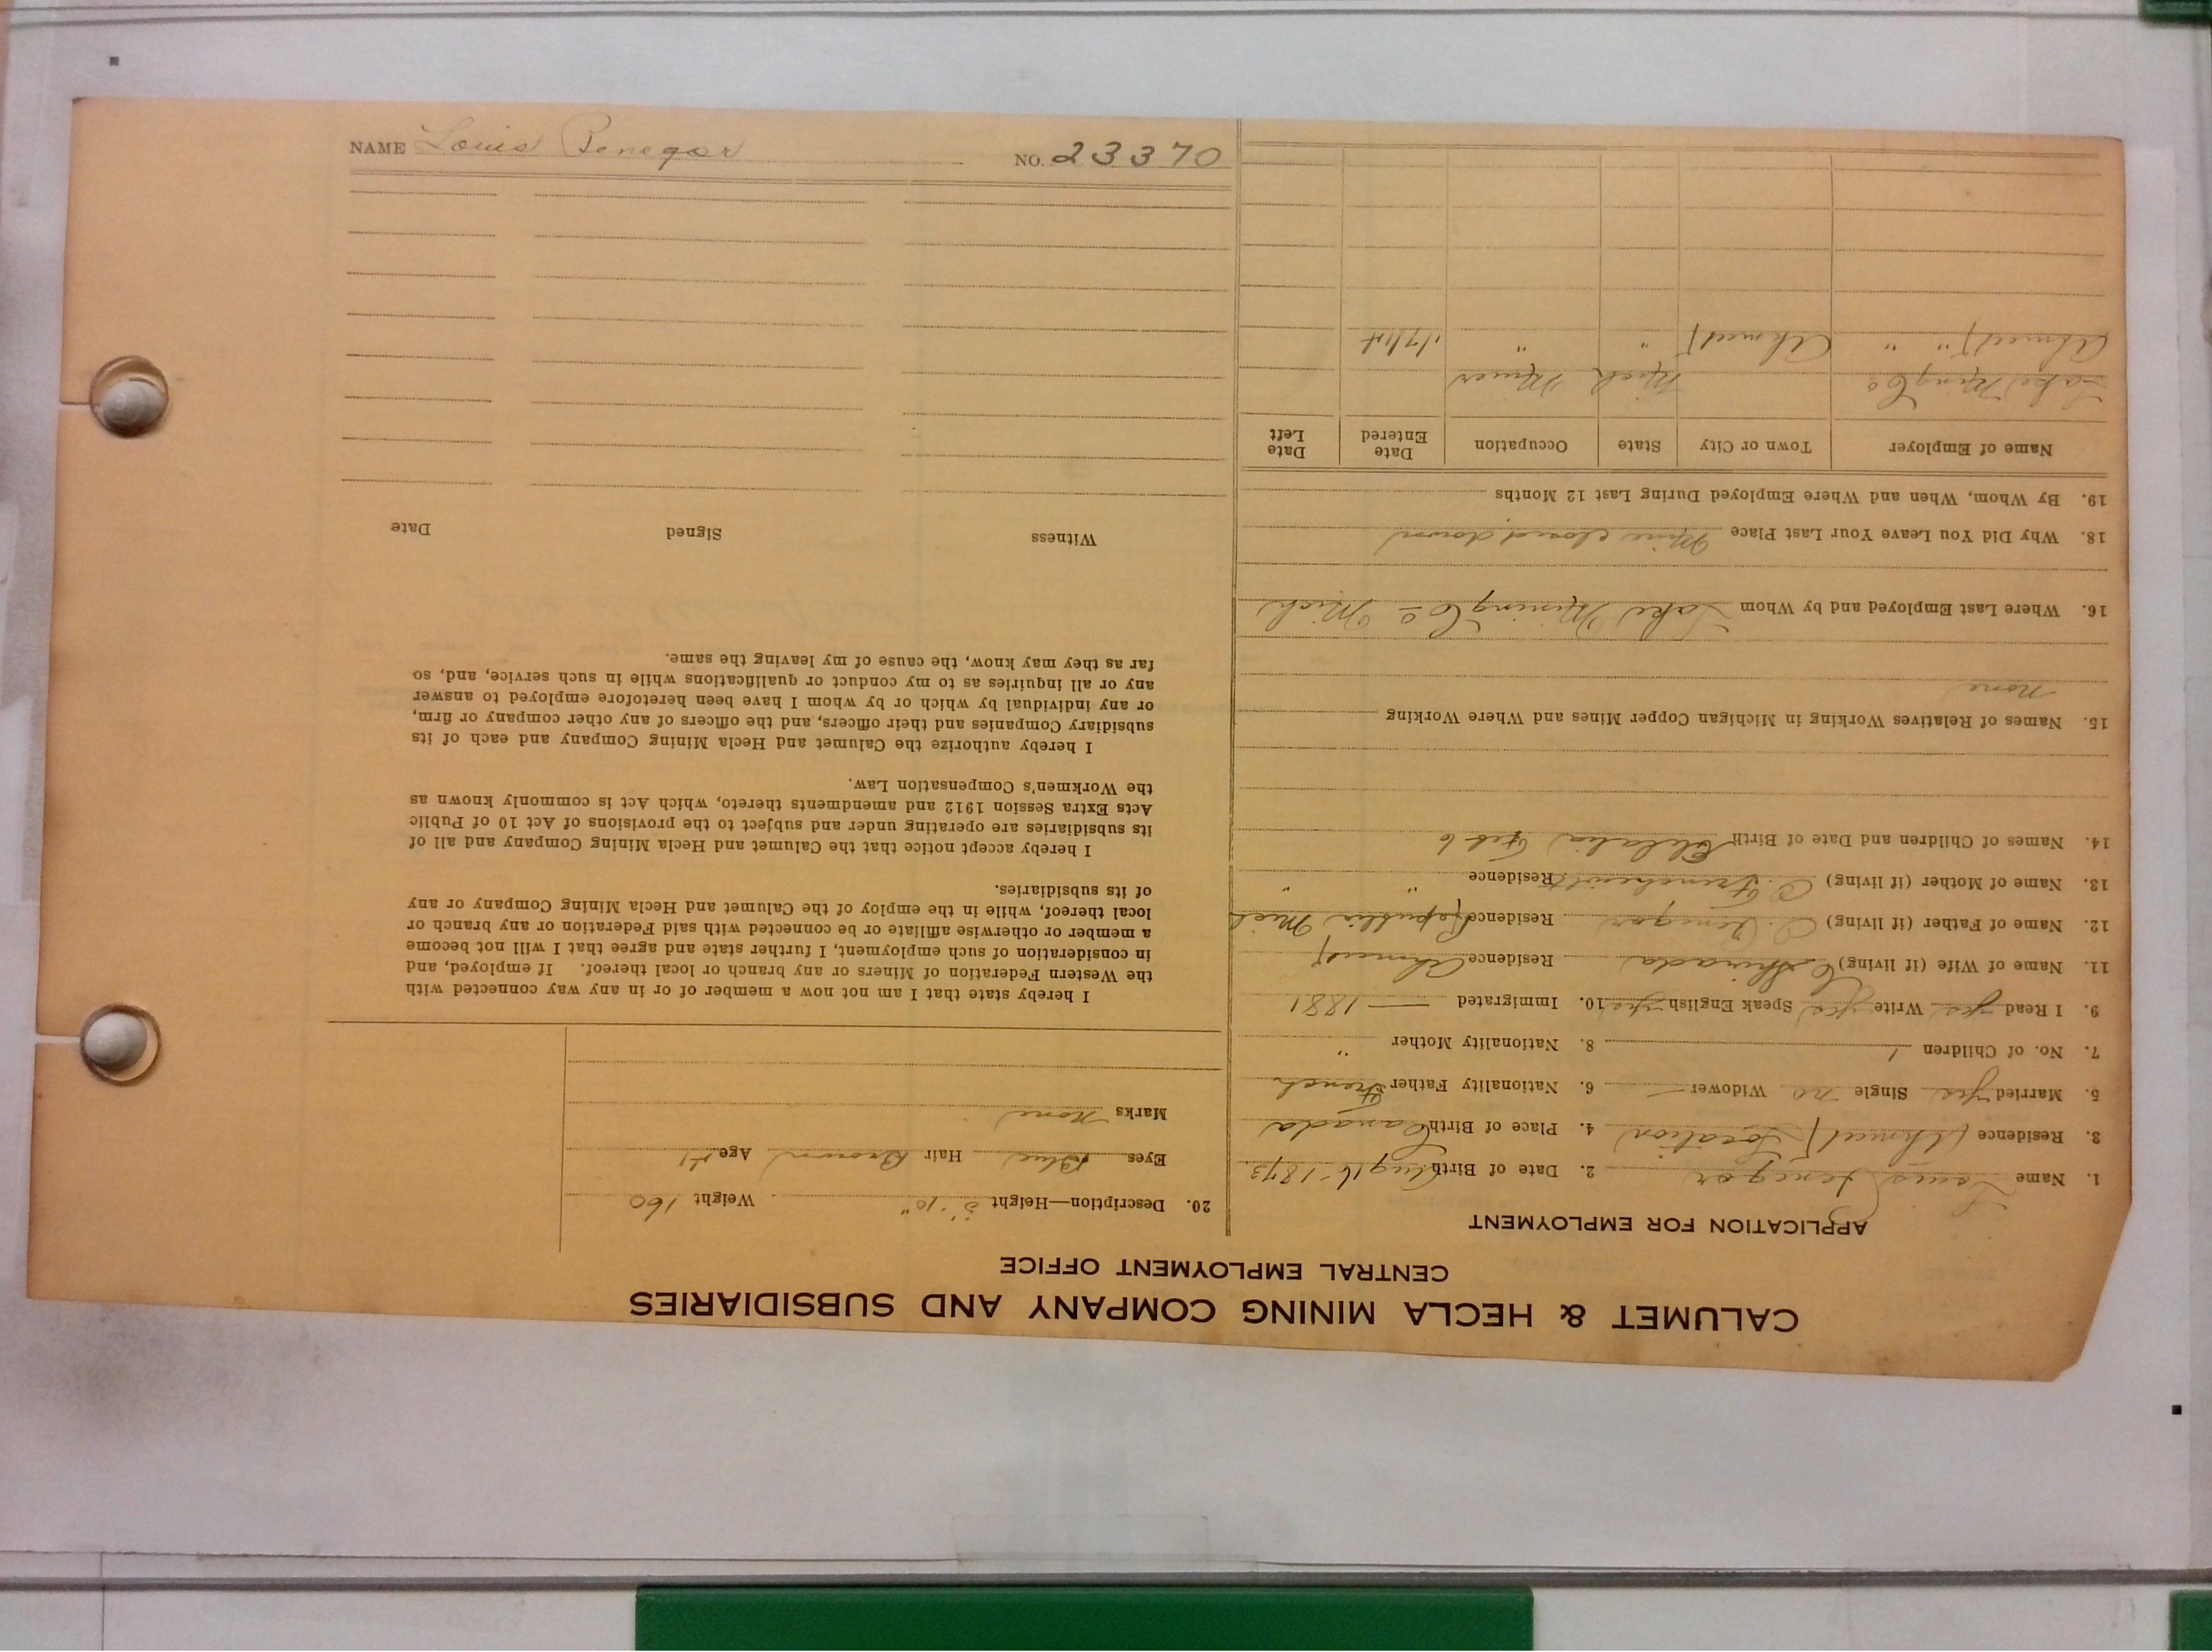 CALUMET & HECLA MINING COMPANY AND SUBSIDIARIES
CENTRAL EMPLOYMENT OFFICE
APPLICATION FOR EMPLOYMENT
1. Name Louis Penegor 2. Date of Birth Aug 16-1873
3. Residence Ahmeek Location 4. Place of Birth Canada
5. Married yes Single no Widower — 6. Nationality Father French
7. No. of Children 1 8. Nationality Mother "
9. I Read yes Write yes Speak English yes 10. Immigrated — 1881
11. Name of Wife (if living) Residence Ahmeek
12. Name of Father (if living) Penegor Residence Republic Mich
13. Name of Mother (if living) Residence " "
14. Names of Children and Date of Birth Feb 6
15. Names of Relatives Working in Michigan Copper Mines and Where Working
none
16. Where Last Employed and by Whom Lake Mining Co - Mich
18. Why Did You Leave Your Last Place Mine closed down
19. By Whom, When and Where Employed During Last 12 Months
Name of Employer Town or City State Occupation Date Entered Date Left
Lake Ming Co Mich Miner
Ahmeek " " Ahmeek " "
20. Description—Height 5'-10" Weight 160
Eyes Blue Hair Brown Age 41
Marks none
I hereby state that I am not now a member of or in any way connected with
the Western Federation of Miners or any branch or local thereof. If employed, and
in consideration of such employment, I further state and agree that I will not become
a member or otherwise affiliate or be connected with said Federation or any branch or
local thereof, while in the employ of the Calumet and Hecla Mining Company or any
of its subsidiaries.
I hereby accept notice that the Calumet and Hecla Mining Company and all of
its subsidiaries are operating under and subject to the provisions of Act 10 of Public
Acts Extra Session 1912 and amendments thereto, which Act is commonly known as
the Workmen's Compensation Law.
I hereby authorize the Calumet and Hecla Mining Company and each of its
subsidiary Companies and their officers, and the officers of any other company or firm,
or any individual by which or by whom I have been heretofore employed to answer
any or all inquiries as to my conduct or qualifications while in such service, and, so
far as they may know, the cause of my leaving the same.
Witness Signed Date
NAME Louis Penegor NO. 23370